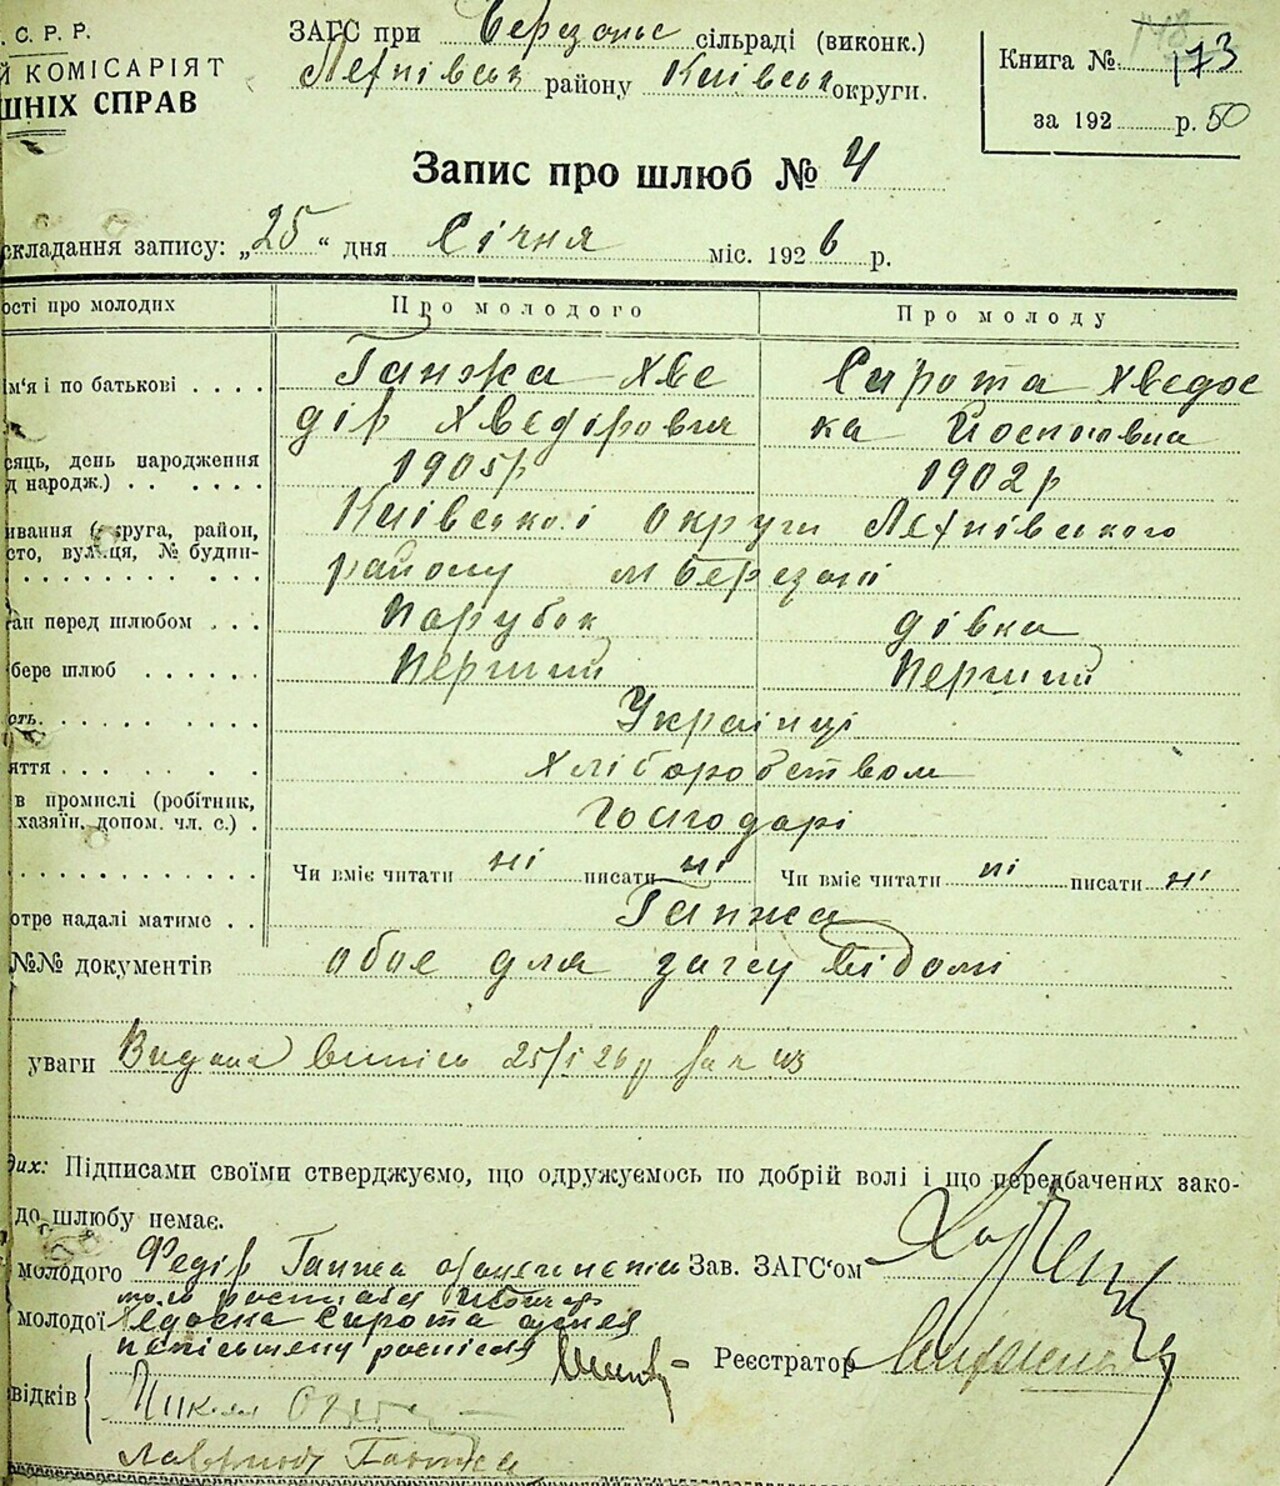 . С. Р. Р.
Й КОМІСАРІЯТ
ШНІХ СПРАВ
ЗАГС при Березанс сільраді (виконк.)
району Київськ округи.
Книга №. 173
за 192 р. 50
Запис про шлюб № 4
складання запису: „25“ дня Січня міс. 1926 р.
ості про молодих
Про молодого
Про молоду
ім'я і по батькові . . . .
Ганжа Хве
дір Хведірович
Сирота Хведос
ка Йосиповна
сяць, день народження
д народж.) . . . . . .
1905р
1902р
ивання (округа, район,
сто, вулиця, № будин-
Київської округи Лехнівського
району м Березані
ан перед шлюбом . . .
Парубок
дівка
бере шлюб . . . . . .
Перший
Перший
сть. . . . . . . . .
Українці
яття . . . . . .
Хліборобством
в промислі (робітник,
хазяїн, допом. чл. с.) .
Господарі
Чи вміє читати ні писати ні
Чи вміє читати ні писати ні
отре надалі матиме . .
Ганжа
№№ документів обоє для загсу відомі
уваги Видана випись 25/I 26р за №
дих: Підписами своїми стверджуємо, що одружуємось по добрій волі і що передбачених зако-
до шлюбу немає.
молодого Федір Ганжа
молодої Хедоска Сирота
Зав. ЗАГС'ом
Реєстратор
відків